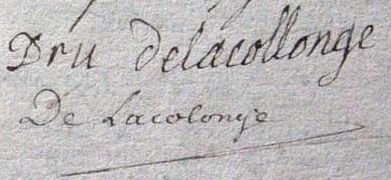 Dru delacollonge
De Lacolonge